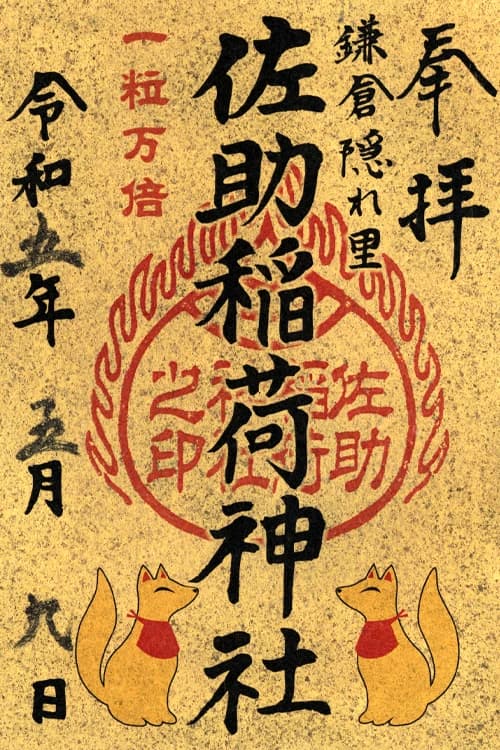 奉拝
鎌倉隠れ里
佐助稲荷神社
佐助
稲荷
神社
之印
一粒万倍
令和五年五月九日